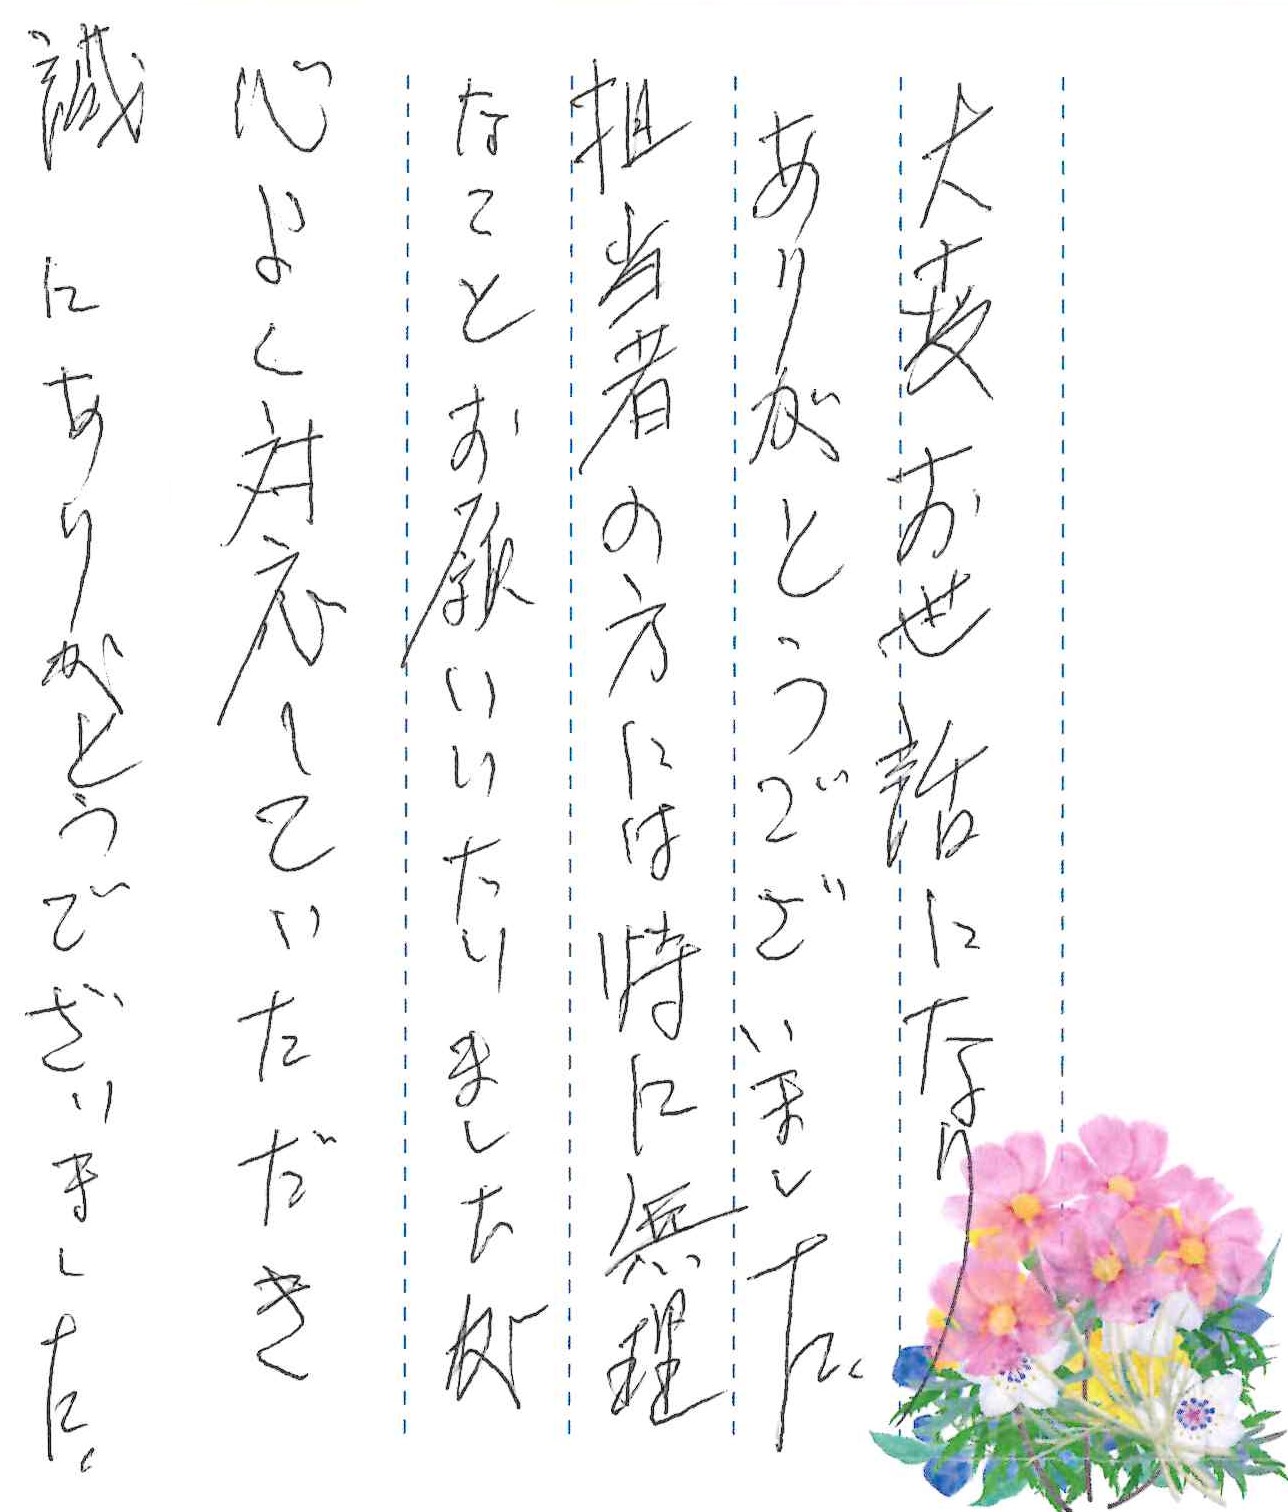 大変お世話になり
ありがとうございました。
担当者の方には時に無理
なことお願いいたしましたが
心よく対応していただき
誠にありがとうございました。